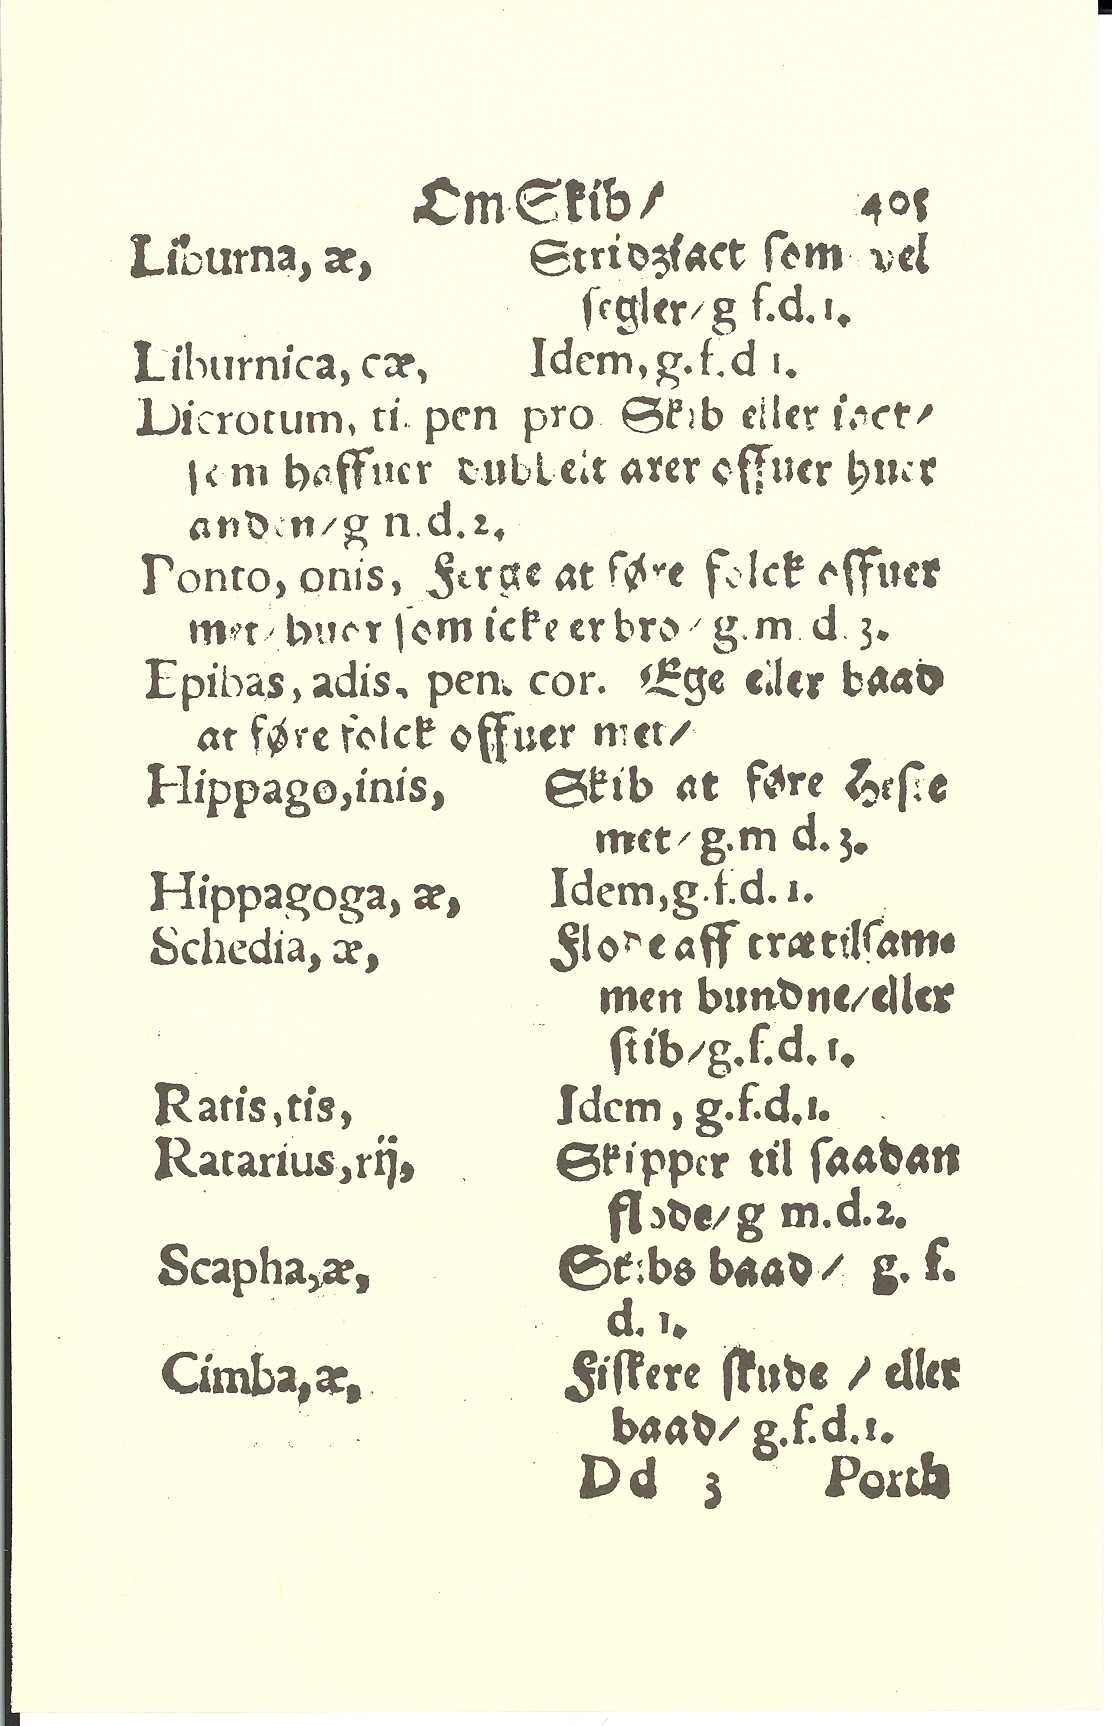 Om Skib/ 405
Liburna, æ, Stridziact som vel
segler/ g f.d. 1.
Liburnica, cæ, Idem, g.f.d 1.
Dicrotum, ti. pen pro. Skib eller iact/
som haffuer dubbelt arer offuer huer
anden/ g n.d.2.
Ponto, onis, Ferge at føre folck offuer
met/ huor som icke er bro/ g.m.d.3.
Epibas, adis, pen. cor. Ege eller baad
at føre folck offuer met/
Hippago, inis, Skib at føre Heste
met/ g.m d.3.
Hippagoga, æ, Idem, g.f.d.1.
Schedia, æ, Flode aff træ tilsam-
men bundne/ eller
skib/ g.f.d.1.
Ratis, tis, Idem, g.f.d.1.
Ratarius, rij, Skipper til saadan
flode/ g m.d.2.
Scapha, æ, Skibs baad/ g. f.
d. 1.
Cimba, æ, Fiskere skude / eller
baad/ g.f.d.1.
Dd 3 Porth